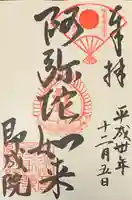 奉拝
平成卅年
十二月五日
阿弥陀如来
即成院